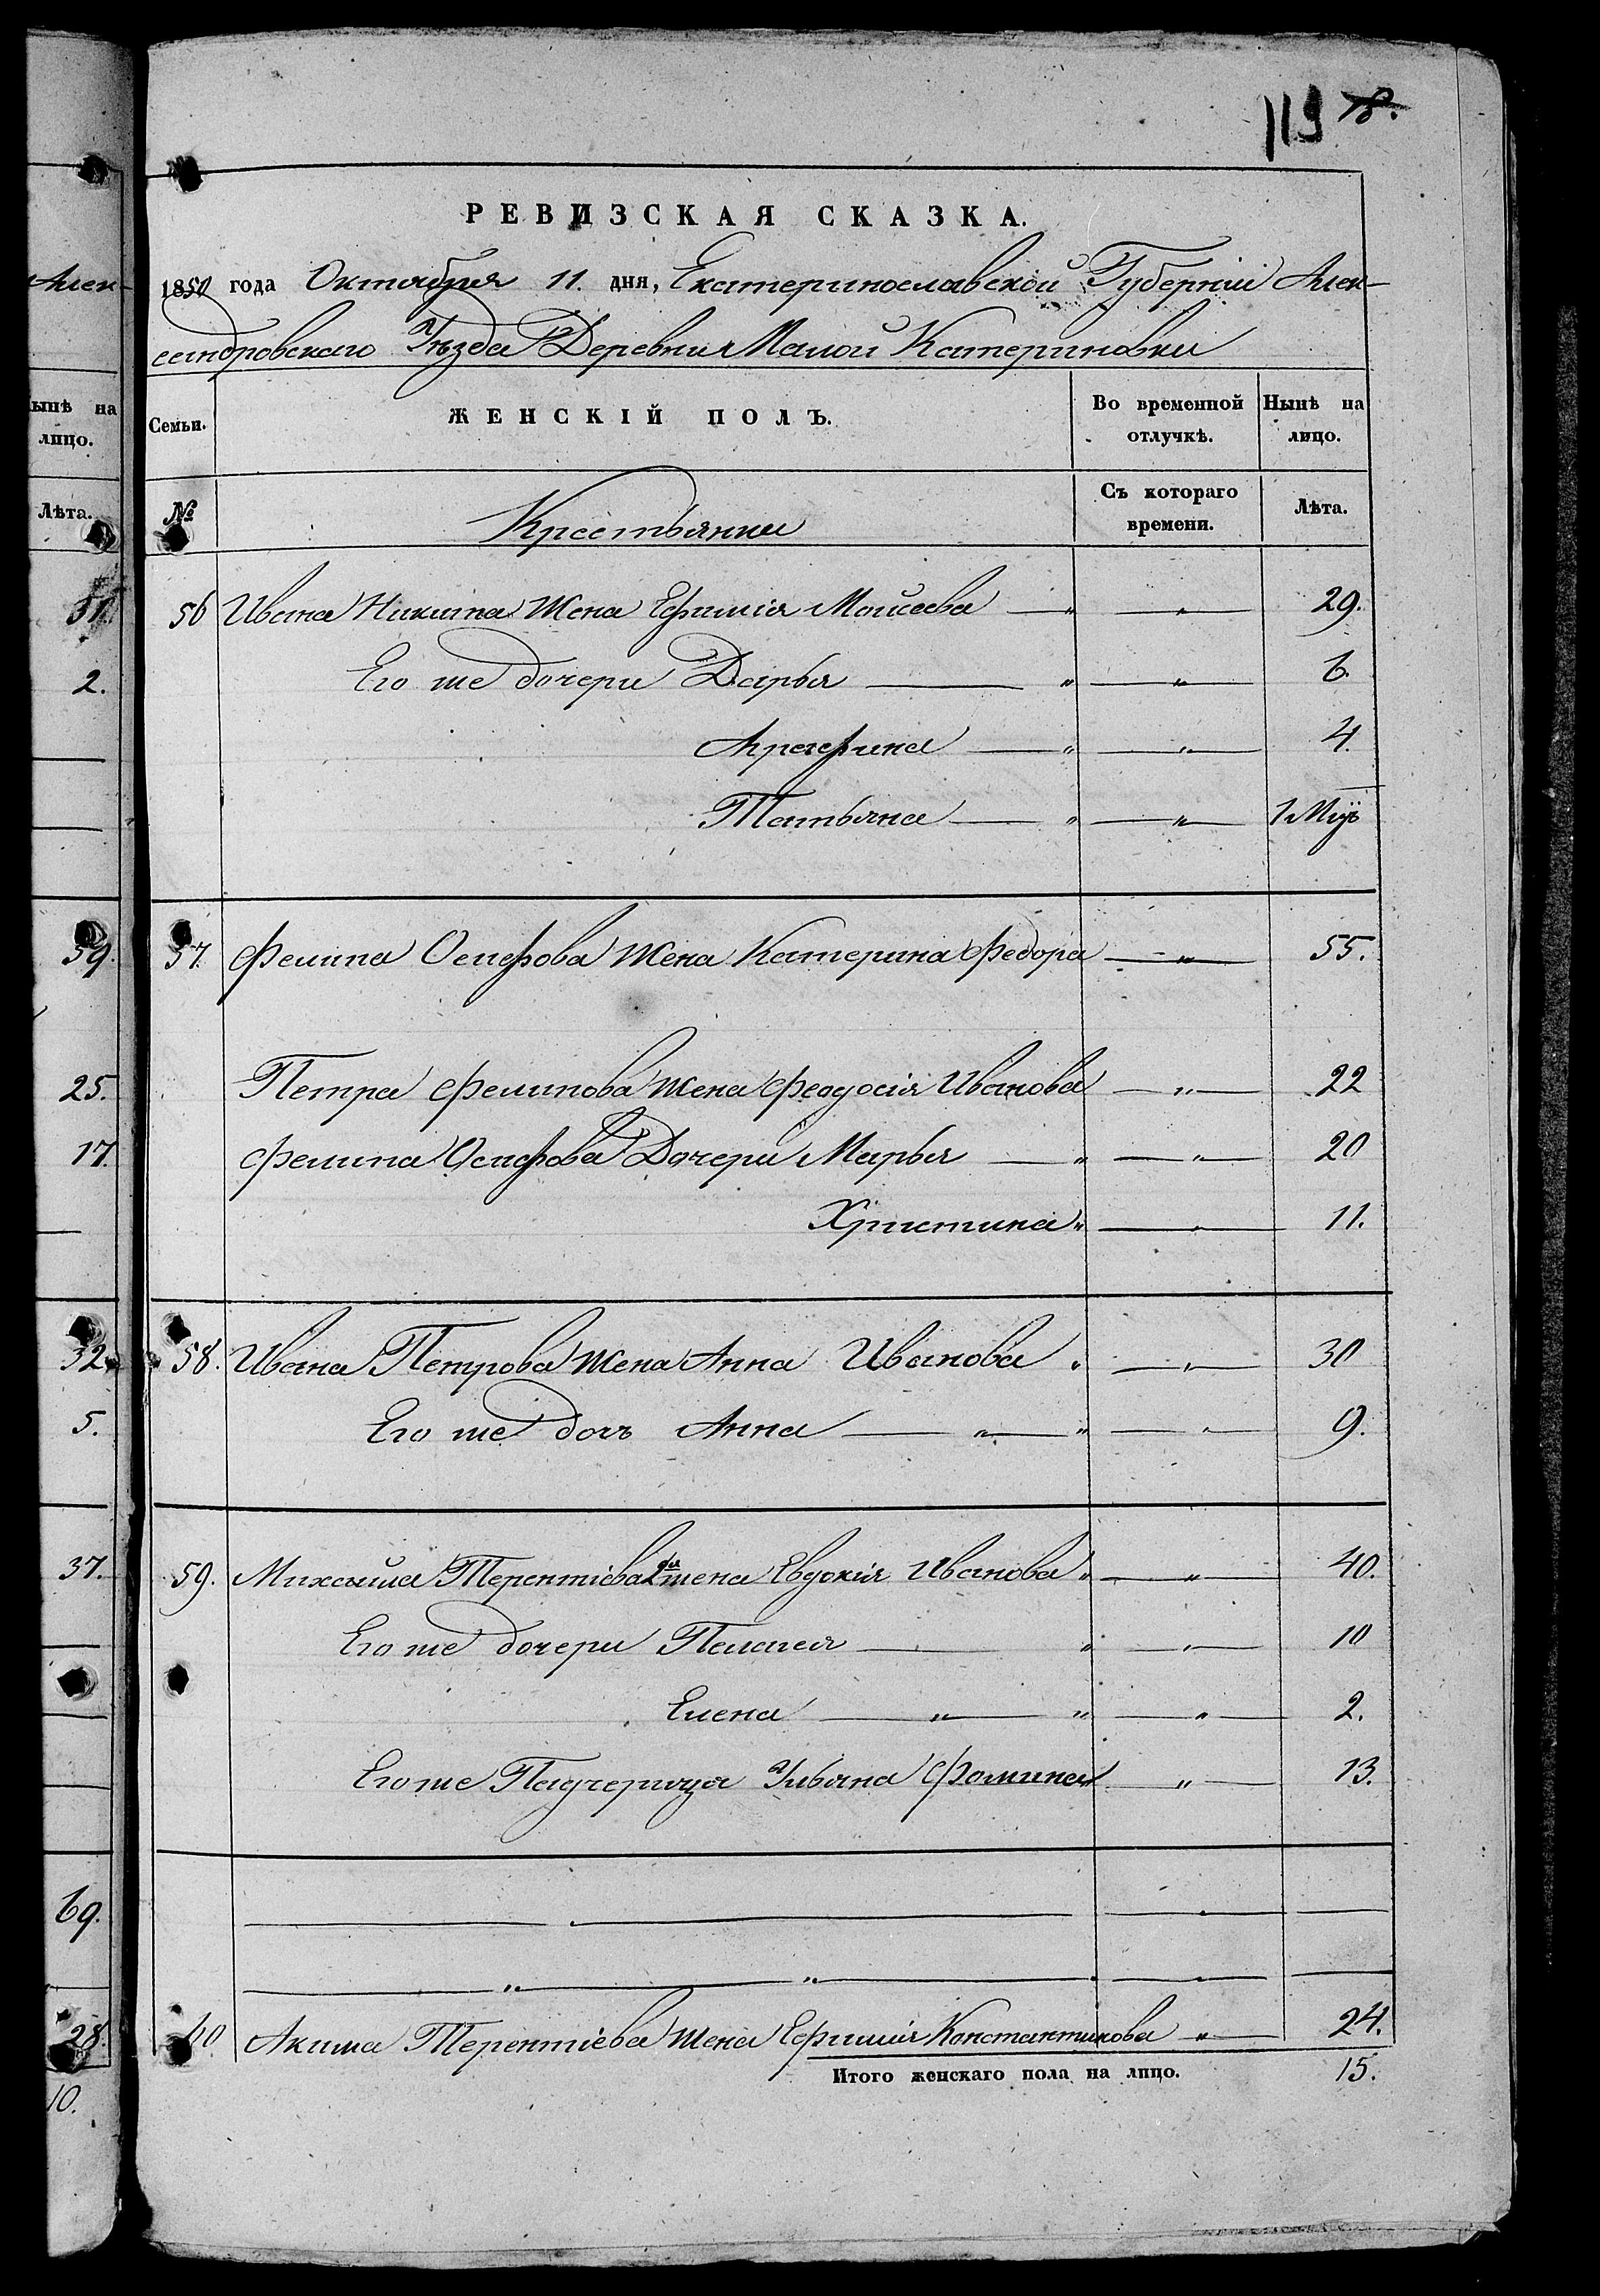 119 18.
РЕВИЗСКАЯ СКАЗКА.
Алек-
1850 года Октября 11. дня, Екатеринославской Губерніи Алек-
сандровскаго Уѣзда Деревни Малой Катериновки
ынѣ на лицо.
Семьи. ЖЕНСКІЙ ПОЛЪ. Во временной отлучкѣ. Нынѣ на лицо.
Лѣта.
№ Крестьянки Съ котораго времени. Лѣта.
56 Ивана Никита жена Ефимія Моисеева — " — " — 29.
Его же дочери Дарья — " — " — 6.
2.
Аграфина — " — " — 4.
Татьяна — " — " — 1 Мцъ
59. 57. Фелипа Осифова жена Катерина Федора — " — 55.
25. Петра Фелипова жена Феодосія Иванова — " — 22
17. Фелипа Осифова Дочери Марья — " — " — 20
Христина " — " — 11.
32. 58. Ивана Петрова жена Анна Иванова " — " — 30
5. Его же дочъ Анна — " — " — " — 9.
37. 59. Михайла Терентіева жена Евдокія Иванова " — " — 40.
Его же дочери Пелагея — " — " — 10
Елена — " — " — " — 2.
Его же Падчерица Ульяна Фомина " — 13.
69.
28. 60 Акима Терентіева жена Ефимія Константинова " — 24.
10. Итого женскаго пола на лицо. 15.